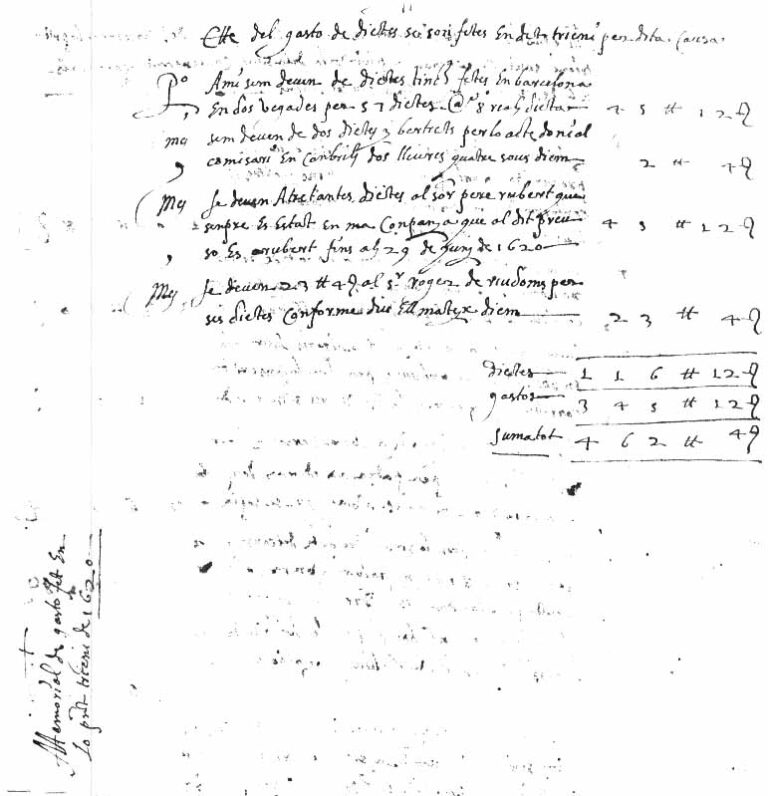 del gasto de dictes se son fetes En dit trieni per dita Causa
P.º Ami sem deuen de dictes tinch fetes En barcelona
En dos vegades per 57 dictes @ 8 reals dicta 45 # 12 ꝭ
mes sem deuen de dos dictes y bestrets per lo acte doni al
comisari En Cambrils dos lliures quatre sous diem 2 # 4 ꝭ
Mes se deuen Atretantes dictes al sor pere rubert que
senpre Es Estat En ma Conpanja que al dit preu
so Es rubert fins als 29 de Juny de 1620 45 # 12 ꝭ
Mes se deuen 23 # 4 ꝭ al sr roger de riudoms per
ses dictes Conforme diu Ell mateix diem 23 # 4 ꝭ
dictes 116 # 12 ꝭ
gastos 345 # 12 ꝭ
suma tot 462 # 4 ꝭ
Memorial de gasto fet En
lo prt trieni de 1620